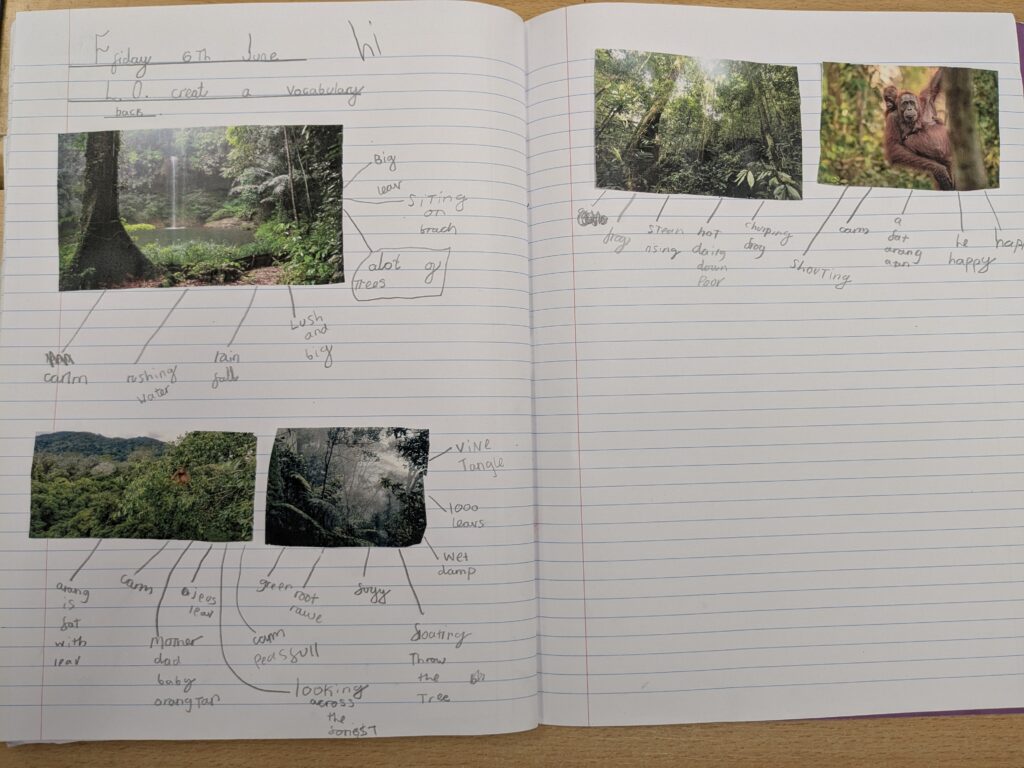 Friday 6Th June
hi
L.O. creat a vocabulary
back
Big
leav
SiTing
on
brach
alot of
Trees
Lush
and
big
carlm
rushing
water
rain
fall
vine
Tangle
1000
leavs
wet
damp
arang
is
fat
with
leav
carm
Mother
dad
baby
orangTan
leav
carm
looking
across
the
green
root
fogy
floating
Throw
the
Tree
frog
stean
rising
hot
daity
down
Poor
chirping
frog
Shouting
carm
a
fat
arang
atan
he
happy
happ